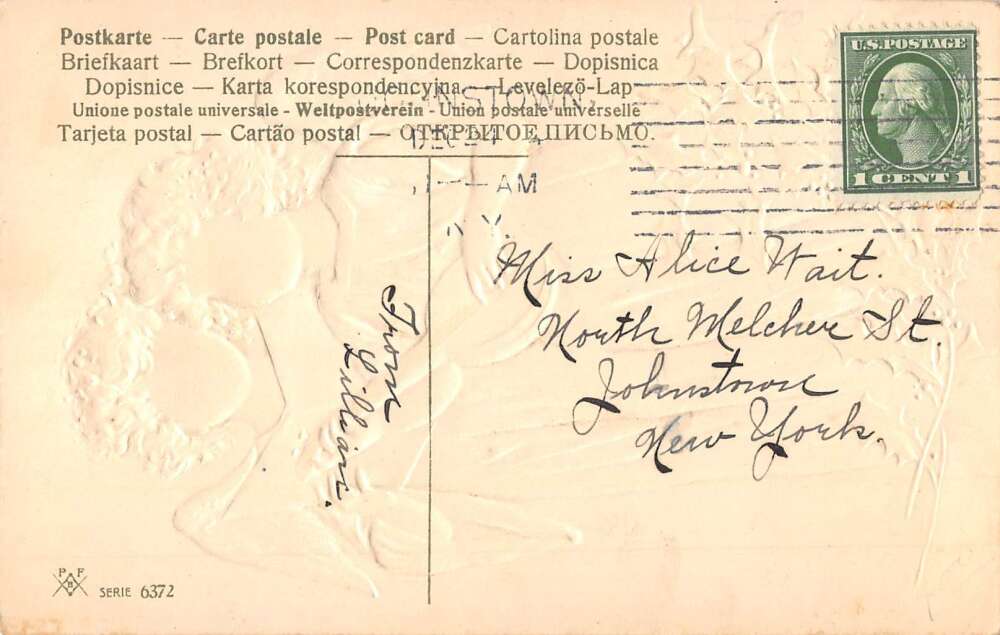 Postkarte — Carte postale — Post card — Cartolina postale
Briefkaart — Brefkort — Correspondenzkarte — Dopisnica
Dopisnice — Karta korespondencyjna — Levelezö-Lap
Unione postale universale - Weltpostverein - Union postale universelle
Tarjeta postal — Cartão postal — ОТКРЫТОЕ ПИСЬМО.
U.S. POSTAGE
1 CENT 1
DEC 24
AM
N.Y.
Miss Alice Wait.
North Melcher St.
Johnstown
New York.
From
Lillian.
P F
B
SERIE 6372